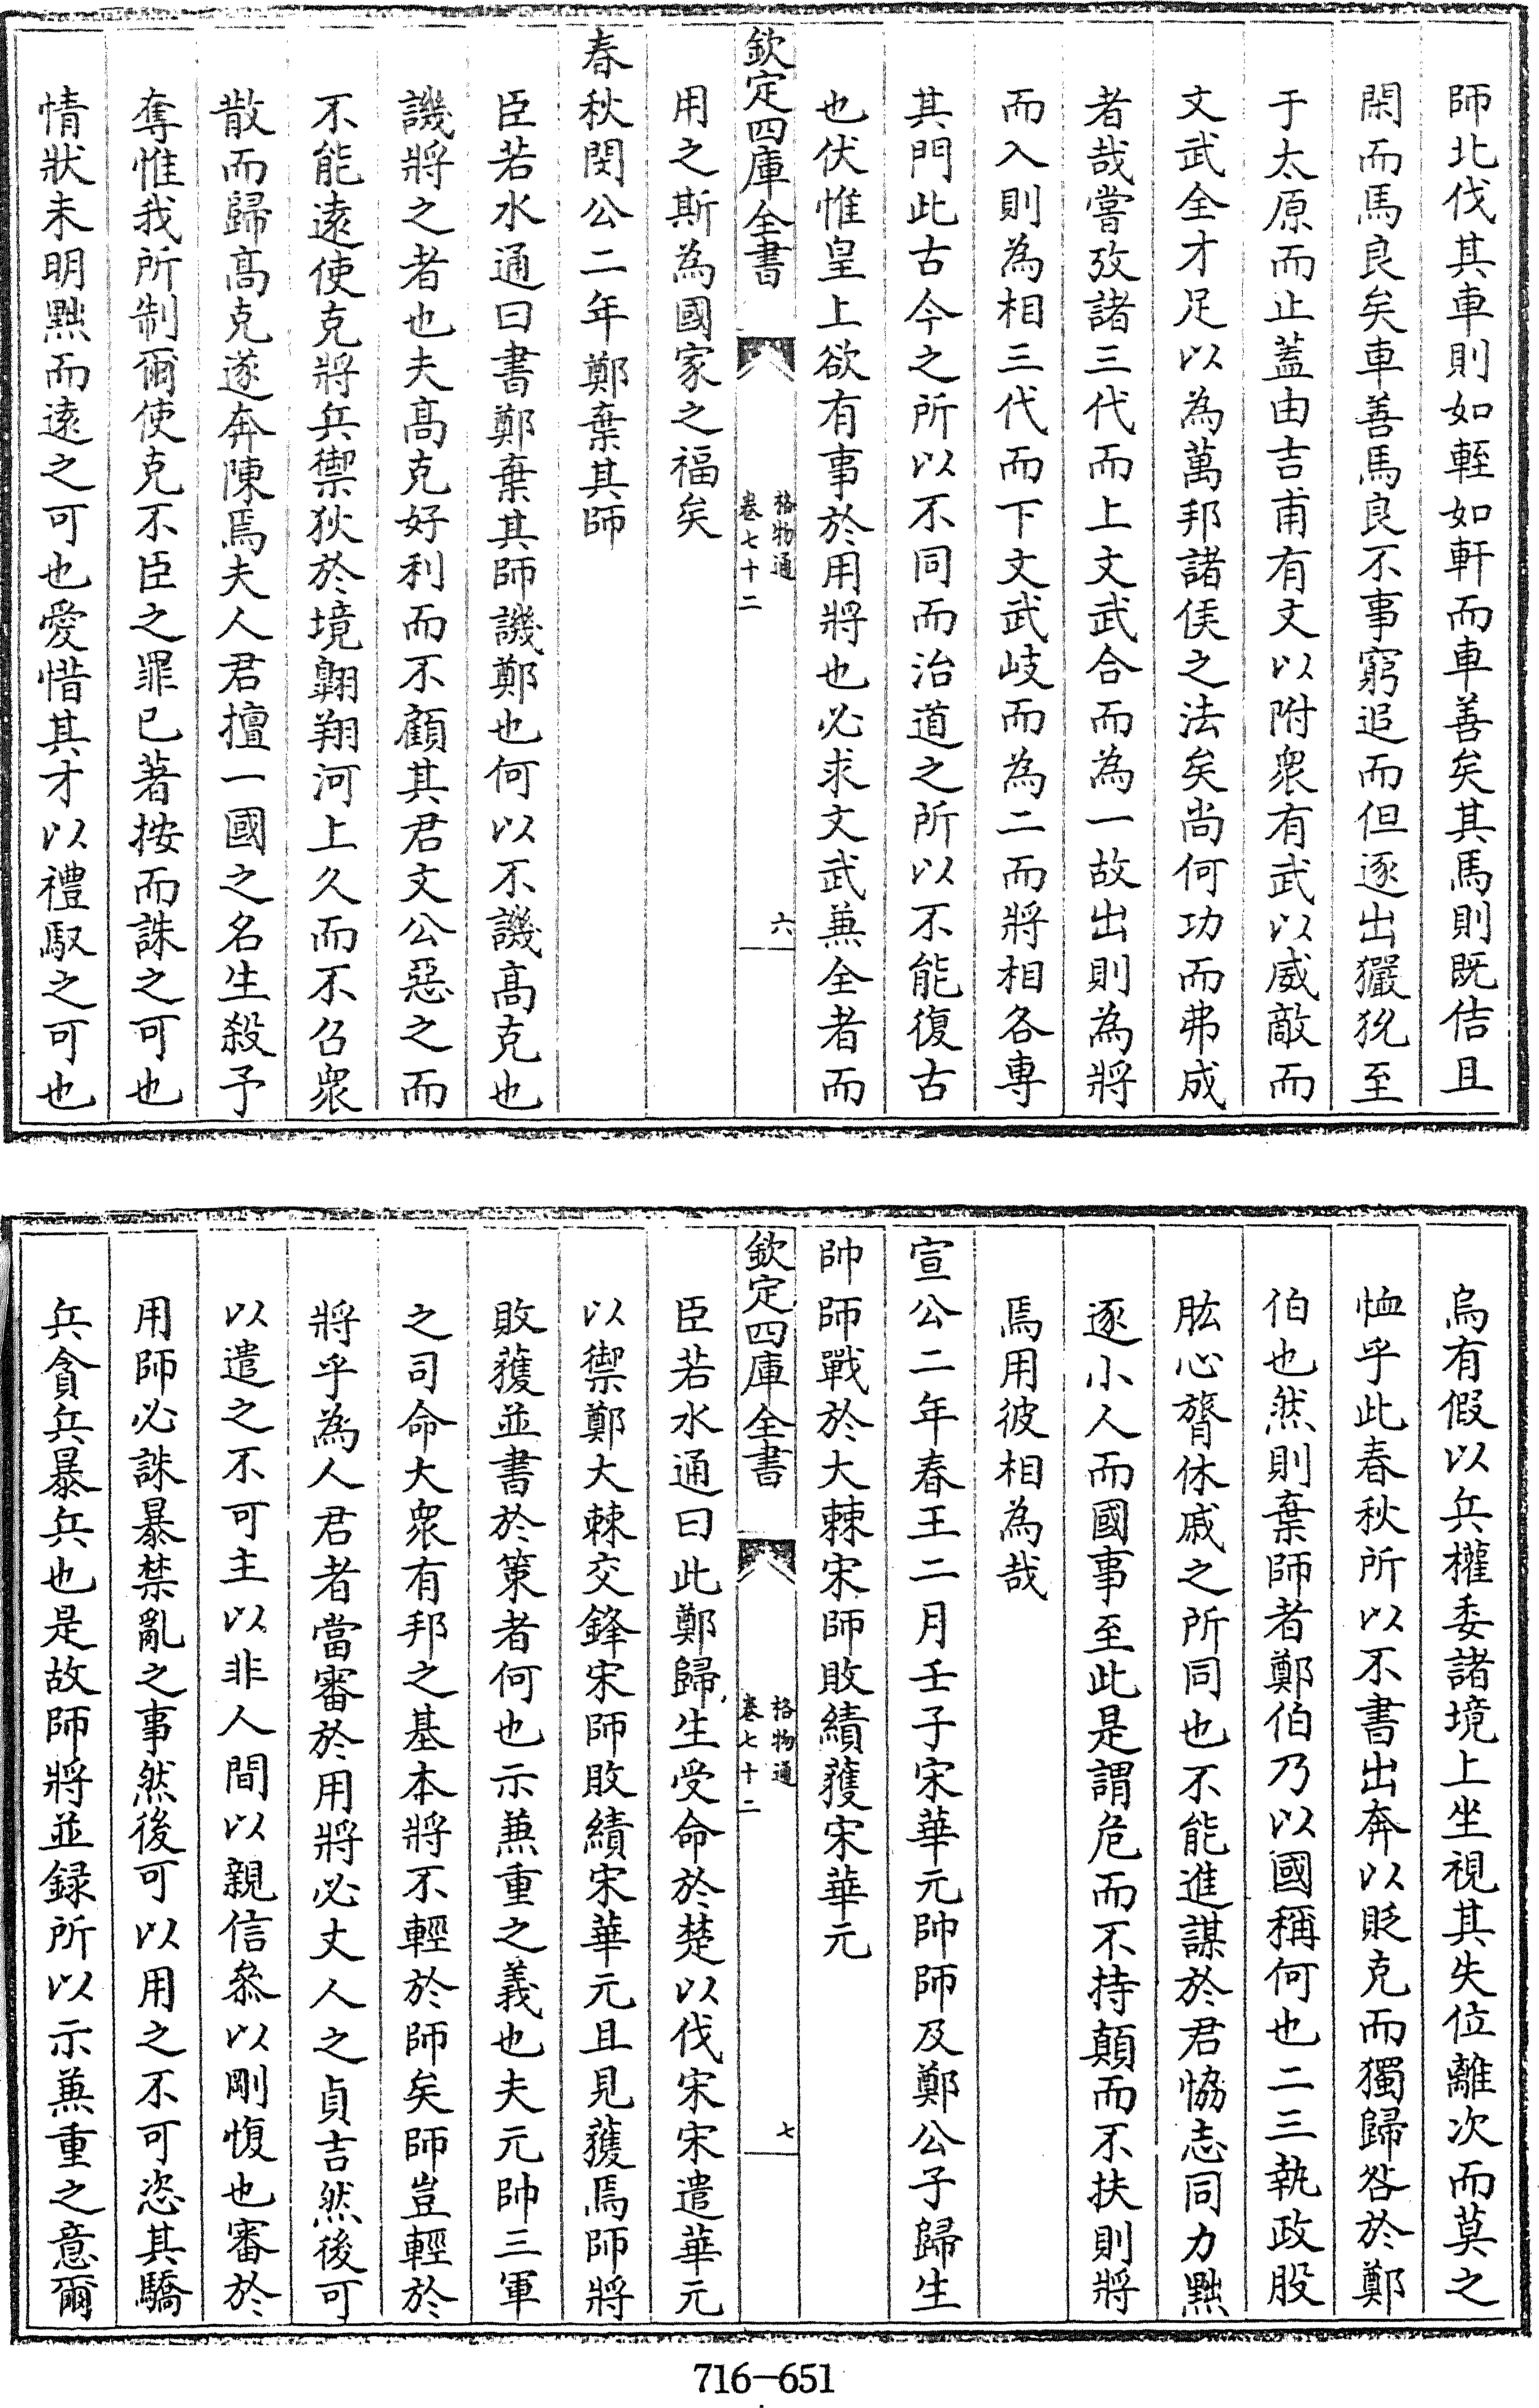 師北伐其車則如輊如軒而車善矣其馬則既佶且
閑而馬良矣車善馬良不事窮追而但逐出玁狁至
于太原而止蓋由吉甫有文以附衆有武以威敵而
文武全才足以為萬邦諸侯之法矣尚何功而弗成
者哉嘗攷諸三代而上文武合而為一故出則為將
而入則為相三代而下文武岐而為二而將相各專
其門此古今之所以不同而治道之所以不能復古
也伏惟皇上欲有事於用將也必求文武兼全者而
欽定四庫全書
格物通
卷七十二
六
用之斯為國家之福矣
春秋閔公二年鄭棄其師
臣若水通曰書鄭棄其師譏鄭也何以不譏髙克也
譏將之者也夫髙克好利而不顧其君文公惡之而
不能遠使克將兵禦狄於境翺翔河上久而不召衆
散而歸髙克遂奔陳焉夫人君擅一國之名生殺予
奪惟我所制爾使克不臣之罪已著按而誅之可也
情狀未明黜而遠之可也愛惜其才以禮馭之可也
烏有假以兵權委諸境上坐視其失位離次而莫之
恤乎此春秋所以不書出奔以貶克而獨歸咎於鄭
伯也然則棄師者鄭伯乃以國稱何也二三執政股
肱心膂休戚之所同也不能進謀於君恊志同力黜
逐小人而國事至此是謂危而不持顛而不扶則將
焉用彼相為哉
宣公二年春王二月壬子宋華元帥師及鄭公子歸生
帥師戰於大棘宋師敗績獲宋華元
欽定四庫全書
格物通
卷七十二
七
臣若水通曰此鄭歸生受命於楚以伐宋宋遣華元
以禦鄭大棘交鋒宋師敗績宋華元且見獲焉師將
敗獲並書於策者何也示兼重之義也夫元帥三軍
之司命大衆有邦之基本將不輕於師矣師豈輕於
將乎為人君者當審於用將必丈人之貞吉然後可
以遣之不可主以非人間以親信叅以剛愎也審於
用師必誅暴禁亂之事然後可以用之不可恣其驕
兵貪兵暴兵也是故師將並録所以示兼重之意爾
716-651